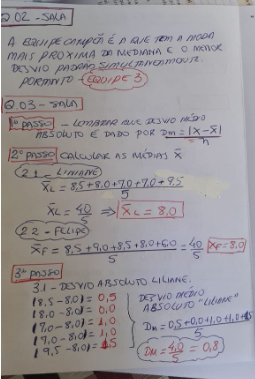 Q.02 - SALA
A EQUIPE CAMPEÃ É A QUE TEM A MODA
MAIS PRÓXIMA DA MEDIANA E O MENOR
DESVIO PADRÃO SIMULTANEAMENTE.
PORTANTO - EQUIPE 3
Q.03 - SALA
1º PASSO - LEMBRAR QUE DESVIO MÉDIO
ABSOLUTO É DADO POR Dm = |X - X̄| / n
2º PASSO CALCULAR AS MÉDIAS X̄
2.1 - LILIANE
X̄L = 8,5+8,0+7,0+7,0+9,5 / 5
X̄L = 40/5 ⇒ X̄L = 8,0
2.2 - FELIPE
X̄F = 8,5+9,0+8,5+8,0+6,0 / 5 = 40/5 X̄F = 8,0
3º PASSO
3.1 - DESVIO ABSOLUTO LILIANE.
|8,5-8,0| = 0,5
|8,0-8,0| = 0,0
|7,0-8,0| = 1,0
|7,0-8,0| = 1,0
|9,5-8,0| = 1,5
DESVIO MÉDIO
ABSOLUTO "LILIANE"
Dm = 0,5+0,0+1,0+1,0+1,5 / 5
Dm = 4,0/5 = 0,8